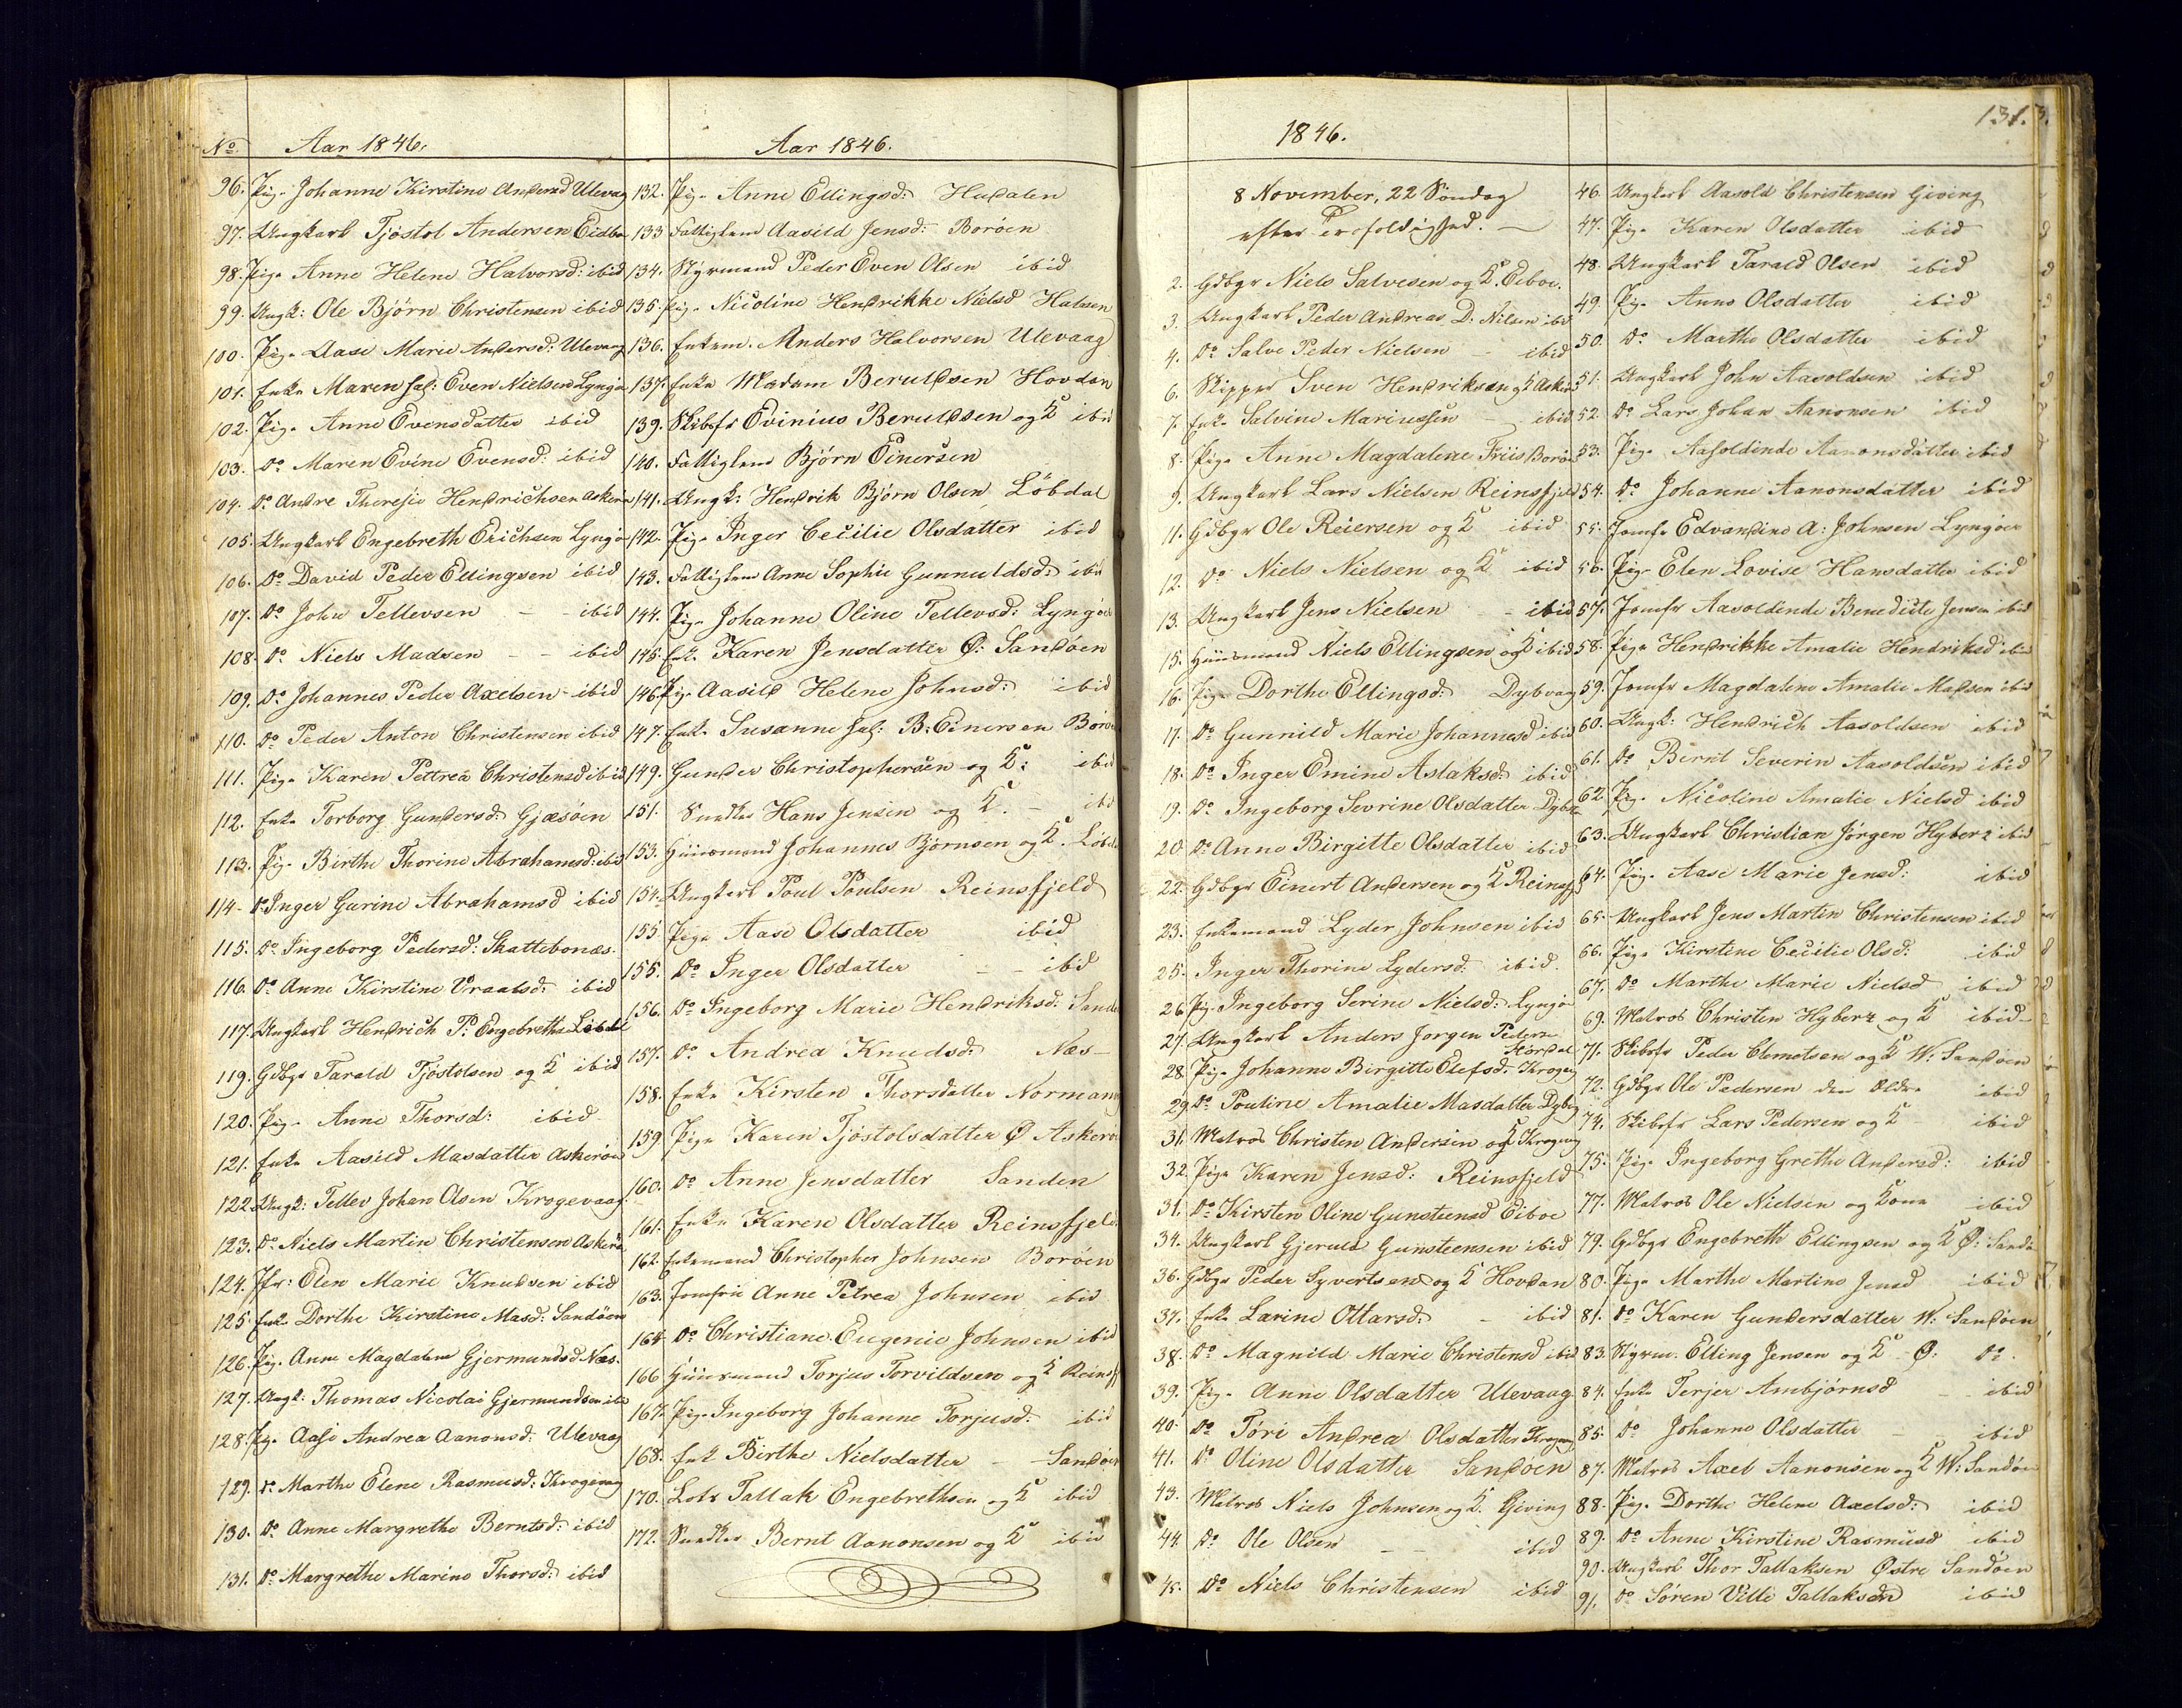 No. Aar 1846.
96. Pige Johanne Kirstine Andersd Ulevag
97. Ungkarl Tjøstol Andersen Eidbo
98. Pige Anne Helene Halvorsd: ibid
99. Ungk: Ole Bjørn Christensen ibid
100. Pige Aase Marie Andersd: Ulevaag
101. Enke Maren sal: Even Nielsen Lyngør
102. Pige Anne Evensdatter ibid
103. Do Maren Evine Evensd: ibid
104. Do Andre Theresie Hendrichsen Askerøn
105. Ungkarl Engebreth Erichsen Lyngør
106. Do David Peder Ellingsen ibid
107. Do John Tellevsen - - ibid
108. Do Niels Madsen - - ibid
109. Do Johannes Peder Axelsen - ibid
110. Do Peder Anton Christensen ibid
111. Pige Karen Pettrea Christensd ibid
112. Enke Torborg Gundersd: Gjæsøen
113. Pige Birthe Thorine Abrahamsd: ibid
114. Do Inger Gurine Abrahamsd ibid
115. Do Ingeborg Pedersd: Skattebonæs.
116. Do Anne Kirstine Vraalsd: ibid
117. Ungkarl Hendrich P: Engebrethse Løbdal
119. Gdbgr Tarald Tjøstolsen og K ibid
120. Pige Anne Thorsd: ibid
121. Enke Aasild Masdatter Askerøen
122. Ungk: Tellev Johan Olsen Krogevaag
123. Do Niels Martin Christensen Askerøn
124. Jfr: Elen Marie Knudsen ibid
125. Enke Dorthe Kirstine Masd: Sandøen
126. Pige Anne Magdalene Gjermundsd Næs.
127. Ungk: Thomas Nicolai Gjermundsen ibid
128. Pige Aase Andrea Aanonsd: Ulevaag
129. Do Marthe Elene Rasmusd: Krogevag
130. Do Anne Margrethe Berntsd: ibid
131. Do Margrethe Marine Thorsd: ibid
Aar 1846.
132. Pige Anne Ellingsd: Hudalen
133 Fattiglem Aasild Jensd: Borøen
134. Styrmand Peder Even Olsen ibid
135. Pige Nicoline Hendrikke Nielsd Halsen
136. Enkem. Anders Halvorsen Ulevaag
137. Enke Madam Beruldsen Hovdan
139. Skibsfr Evinius Beruldsen og K ibid
140. Fattiglem Bjørn Einersen
141. Ungk: Hendrik Bjørn Olsen Løbdal
142. Pige Inger Cecilie Olsdatter ibid
143. Fattiglem Anne Sophie Gunnuldsd: ibid
144. Pige Johanne Oline Tellevsd: Lyngøer
145. Enk. Karen Jensdatter Ø: Sandøen
146. Pige Aasild Helene Johnsd: ibid
147. Enke Susanne sal: B: Einersen Borøen
149. Gunder Christophersen og K: ibid
151. Snedker Hans Jensen og K. - ibid
153. Huusmand Johannes Bjørnsen og K. Løbdal
154. Ungkarl Poul Poulsen Reinsfjeld
155 Pige Aase Olsdatter ibid
155. Do Inger Olsdatter - - ibid
156. Do Ingeborg Marie Hendriksd: Sanden
157. Do Andrea Knudsd: Næs-
158. Enke Kirsten Thorsdatter Normann
159 Pige Karen Tjøstolsdatter Ø Askerøn
160. Do Anne Jensdatter Sanden
161. Enke Karen Olsdatter Reinsfjeld
162. Enkemand Christopher Johnsen Borøen
163. Jomfrue Anne Petrea Johnsen ibid
164 Do Christiane Eugenie Johnsen ibid
166 Huusmand Torjus Torvildsen og K Reinsfj
167. Pige Ingeborg Johanne Torjusd: ibid
168. Enk Birthe Nielsdatter - Sandøen
170. Lods Tallak Engebrethsen og K ibid
172. Snedker Bernt Aanonsen og K ibid
1846.
131.
8 November, 22 Søndag
efter Trefoldighed.
2. Gdbgr Niels Salvesen og K. Eiboe.
3. Ungkarl Peder Andreas D: Nilsen ibid
4. Do Salve Peder Nielsen - ibid
6. Skipper Sven Hendriksen og K Askerø
7. Enke Salvine Mariussen - ibid
8. Pige Anne Magdalene Friis Borøen
9. Ungkarl Lars Nielsen Reinsfjeld
11. Gdbgr Ole Reiersen og K ibid
12. Do Niels Nielsen og K ibid
13. Ungkarl Jens Nielsen - ibid
15. Huusmand Niels Ellingsen og K ibid
16. Pige Dorthe Ellingsd: Dybvag
17. Do Gunnild Marie Johannesd ibid
18. Do Inger Emine Aslaksd: ibid
19. Do Ingeborg Sevrine Olsdatter Dybv
20. Do Anne Birgitte Olsdatter ibid
22. Gdbgr Einert Andersen og K Reinsfj
23. Enkemand Lyder Johnsen ibid
25. Inger Thorine Lydersd: ibid.
26. Pige Ingeborg Serine Nielsd: Lyngør
27. Ungkarl Anders Jørgen Pedersen
28. Pige Johanne Birgitte Olefsd. Krogevg
29. Do Pouline Amalie Masdatter Dybvg
31. Matros Christen Andersen og K Krogevg
32. Pige Karen Jensd: Reinsfjeld
31. Do Kirsten Oline Gunsteensd Eiboe
34. Ungkarl Gjeruld Gunsteensen ibid
36. Gdbgr Peder Syvertsen og K Hovdan
37. Enke Larine Ottarsd: - ibid
38. Do Magnild Marie Christensd ibid
39. Pige Anne Olsdatter Ulevaag
40. Do Tøri Andrea Olsdatter Krogevag
41. Do Oline Olsdatter Sandøen
43. Matros Niels Johnsen og K. Giving
44. Do Ole Olsen - - ibid
45. Do Niels Christensen ibid
46. Ungkarl Aasold Christensen Giving
47. Pige Karen Olsdatter ibid
48. Ungkarl Tarald Olsen ibid
49. Pige Anne Olsdatter ibid
50. Do Marthe Olsdatter ibid
51. Ungkarl John Aasoldsen ibid
52. Do Lars Johan Aanonsen ibid
53. Pige Aasoldinde Aanonsdatter ibid
54. Do Johanne Aanonsdatter ibid
55. Jomfr Edvardine A: Johnsen Lyngøer
56. Pige Elen Lovise Hansdatter ibid
57. Jomfr Aasoldinde Benedicte Jensen ibid
58. Pige Hendrikke Amalie Hendriksd ibid
59. Jomfr Magdalene Amalie Madsen ibid
60. Ungk: Hendrich Aasoldsen ibid
61. Do Bernt Severin Aasoldsen ibid
62. Pige Nicoline Amalie Nielsd ibid
63. Ungkarl Christian Jørgen Hyberz ibid
64. Pige Aase Marie Jensd: ibid
65. Ungkarl Jens Martin Christensen ibid
66. Pige Kirstine Cecilie Olsd: ibid
67. Do Marthe Marie Nielsd ibid
69. Matros Christen Hyberz og K ibid
71. Skibsfr Peder Clemetsen og K W: Sandøen
72. Gdbgr Ole Pedersen den Ældre ibid
74. Skibsfr Lars Pedersen og K ibid
75. Pige Ingeborg Grethe Andersd: ibid
77. Matros Ole Nielsen og Kone ibid
79. Gdbgr Engebreth Ellingsen og K Ø: Sandø
80. Pige Marthe Martine Jensd ibid
81. Do Karen Gundersdatter W: Sandøen
83. Styrm. Elling Jensen og K - Ø: Do.
84. Enke Terjer Ambjørnsd - ibid
85. Do Johanne Olsdatter - ibid
87. Matros Axel Aanonsen og K W: Sandøen
88. Pige Dorthe Helene Axelsd: ibid
89. Do Anne Kirstine Rasmusd ibid
90. Ungkarl Thor Tallaksen Østre Sandøen
91. Do Søren Ville Tallaksen ibid